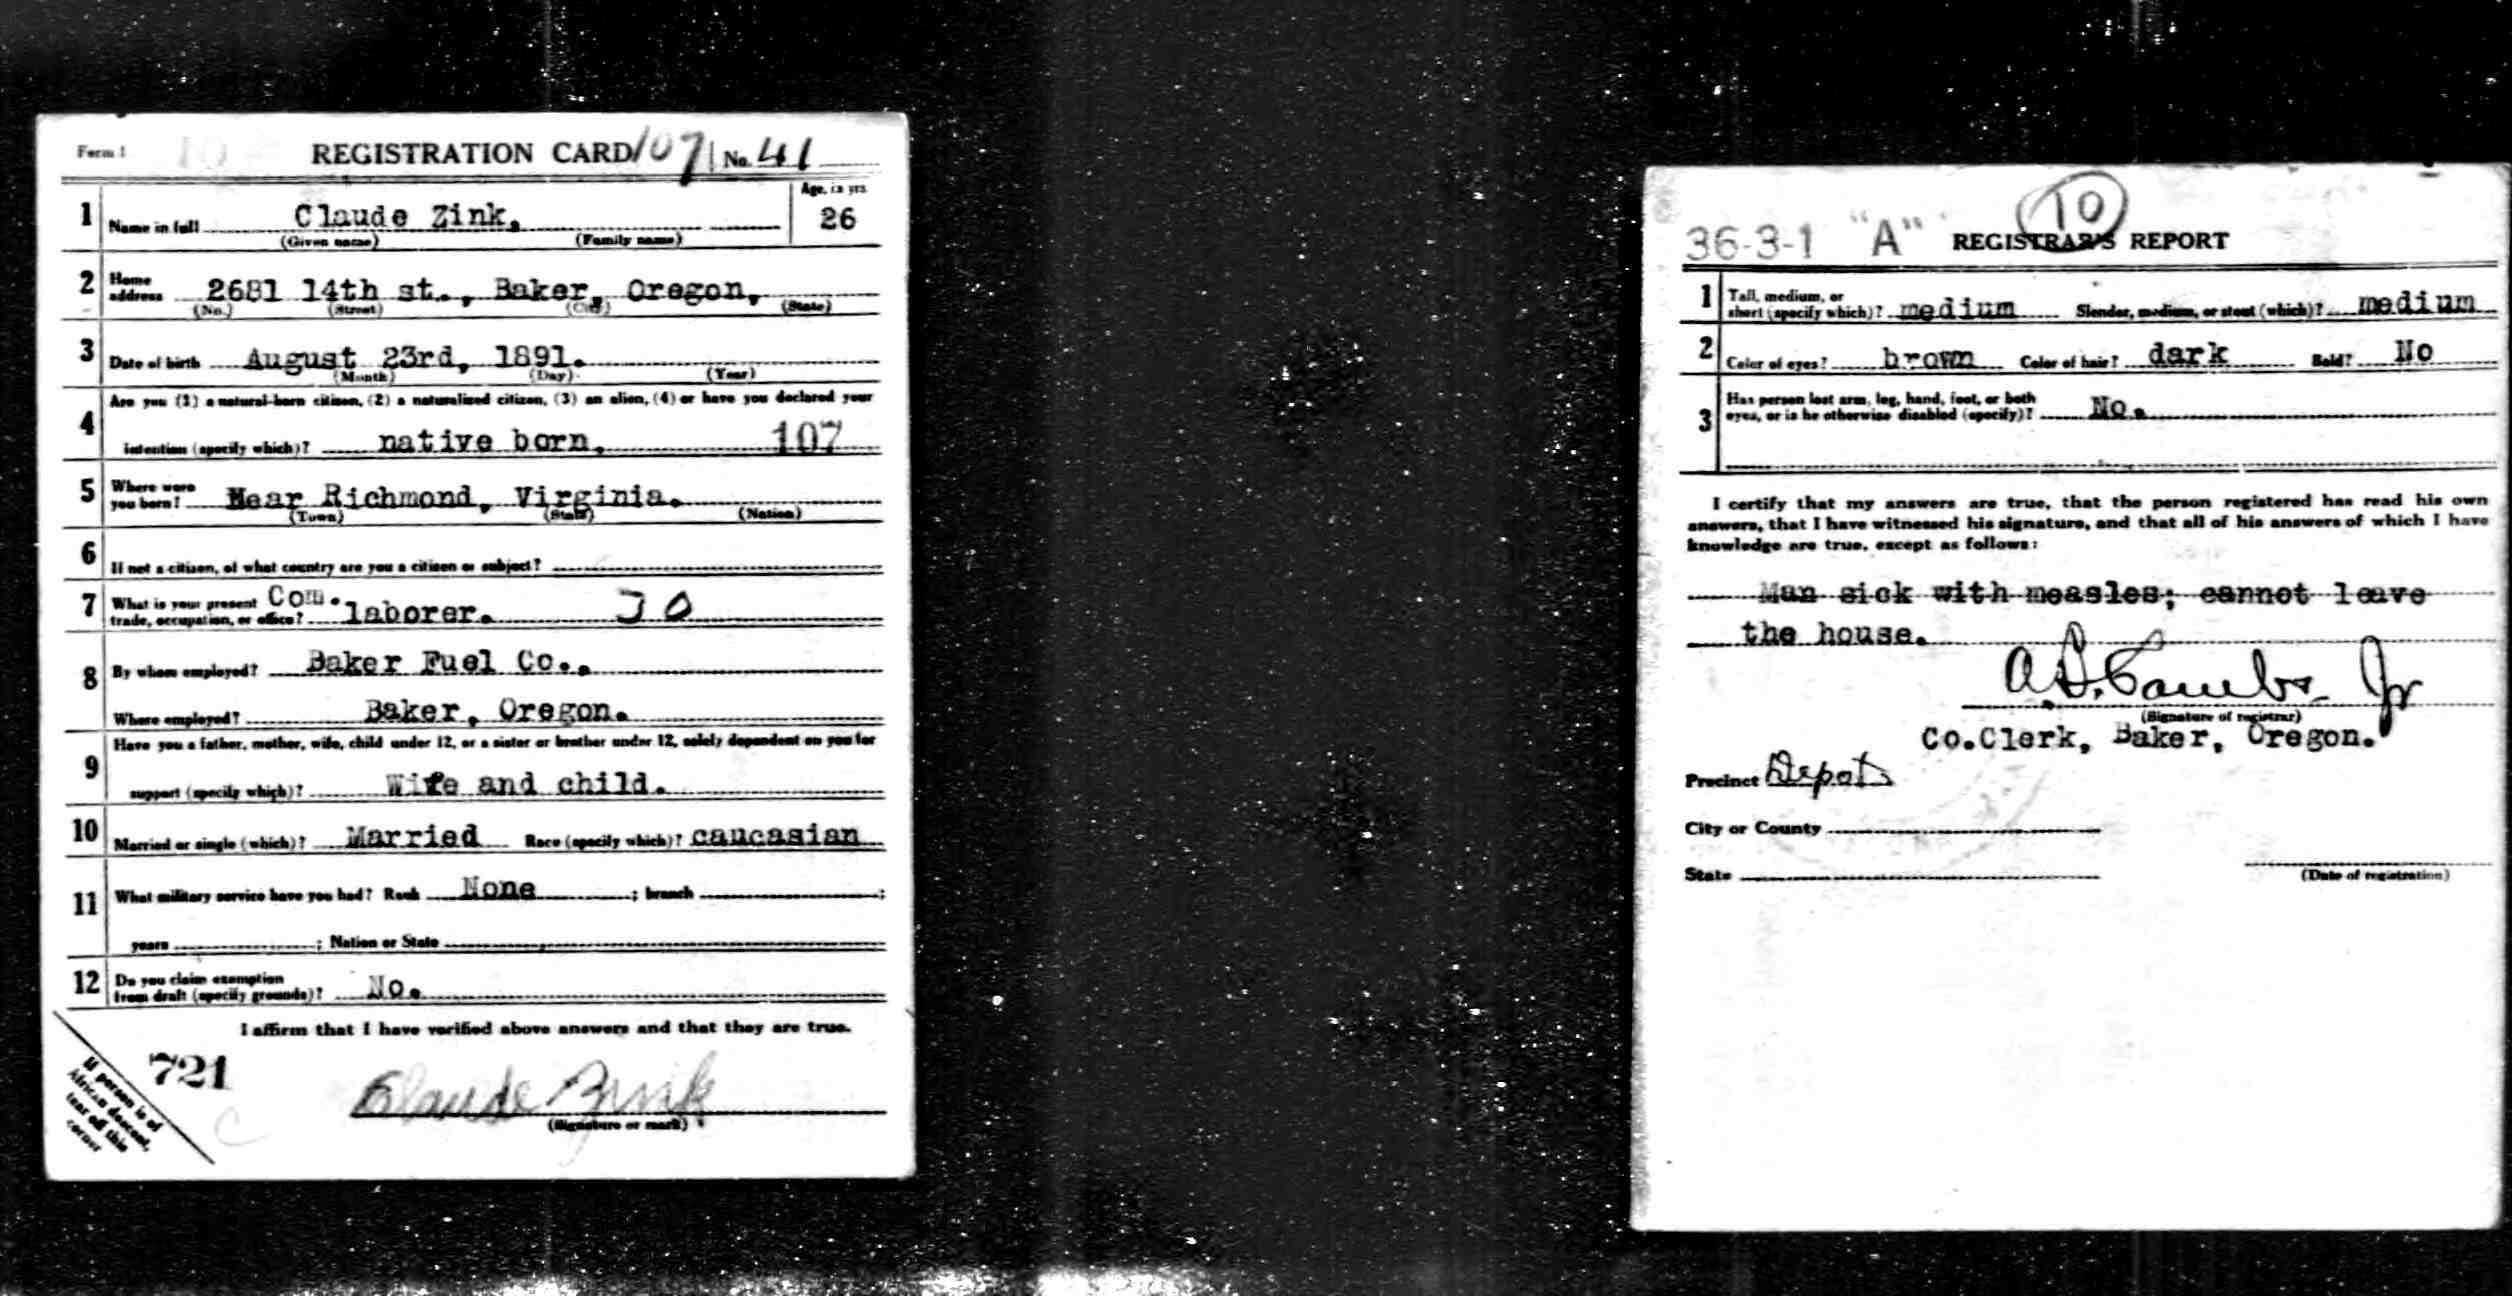 Form 1 REGISTRATION CARD 107 No. 41
1 Name in full Claude Zink. Age, in yrs. 26
(Given name) (Family name)
2 Home address 2681 14th st., Baker, Oregon,
(No.) (Street) (City) (State)
3 Date of birth August 23rd, 1891.
(Month) (Day) (Year)
4 Are you (1) a natural-born citizen, (2) a naturalized citizen, (3) an alien, (4) or have you declared your
intention (specify which)? native born. 107
5 Where were you born? Near Richmond, Virginia.
(Town) (State) (Nation)
6 If not a citizen, of what country are you a citizen or subject?
7 What is your present trade, occupation, or office? Com. laborer. 30
8 By whom employed? Baker Fuel Co.,
Where employed? Baker, Oregon.
9 Have you a father, mother, wife, child under 12, or a sister or brother under 12, solely dependent on you for
support (specify which)? Wife and child.
10 Married or single (which)? Married Race (specify which)? caucasian
11 What military service have you had? Rank None ; branch ;
years ; Nation or State
12 Do you claim exemption from draft (specify grounds)? No.
I affirm that I have verified above answers and that they are true.
721
Claude Zink
(Signature or mark)
If person is of
African descent,
tear off this
corner
10
36-3-1 "A" REGISTRAR'S REPORT
1 Tall, medium, or short (specify which)? medium Slender, medium, or stout (which)? medium
2 Color of eyes? brown Color of hair? dark Bald? No
3 Has person lost arm, leg, hand, foot, or both
eyes, or is he otherwise disabled (specify)? No.
I certify that my answers are true, that the person registered has read his own
answers, that I have witnessed his signature, and that all of his answers of which I have
knowledge are true, except as follows:
Man sick with measles; cannot leave
the house.
Jr
(Signature of registrar)
Co.Clerk, Baker, Oregon.
Precinct Depot
City or County
State
(Date of registration)